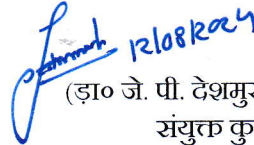 12/08/2024
(ड़ा० जे. पी. देशमुर
संयुक्त कु